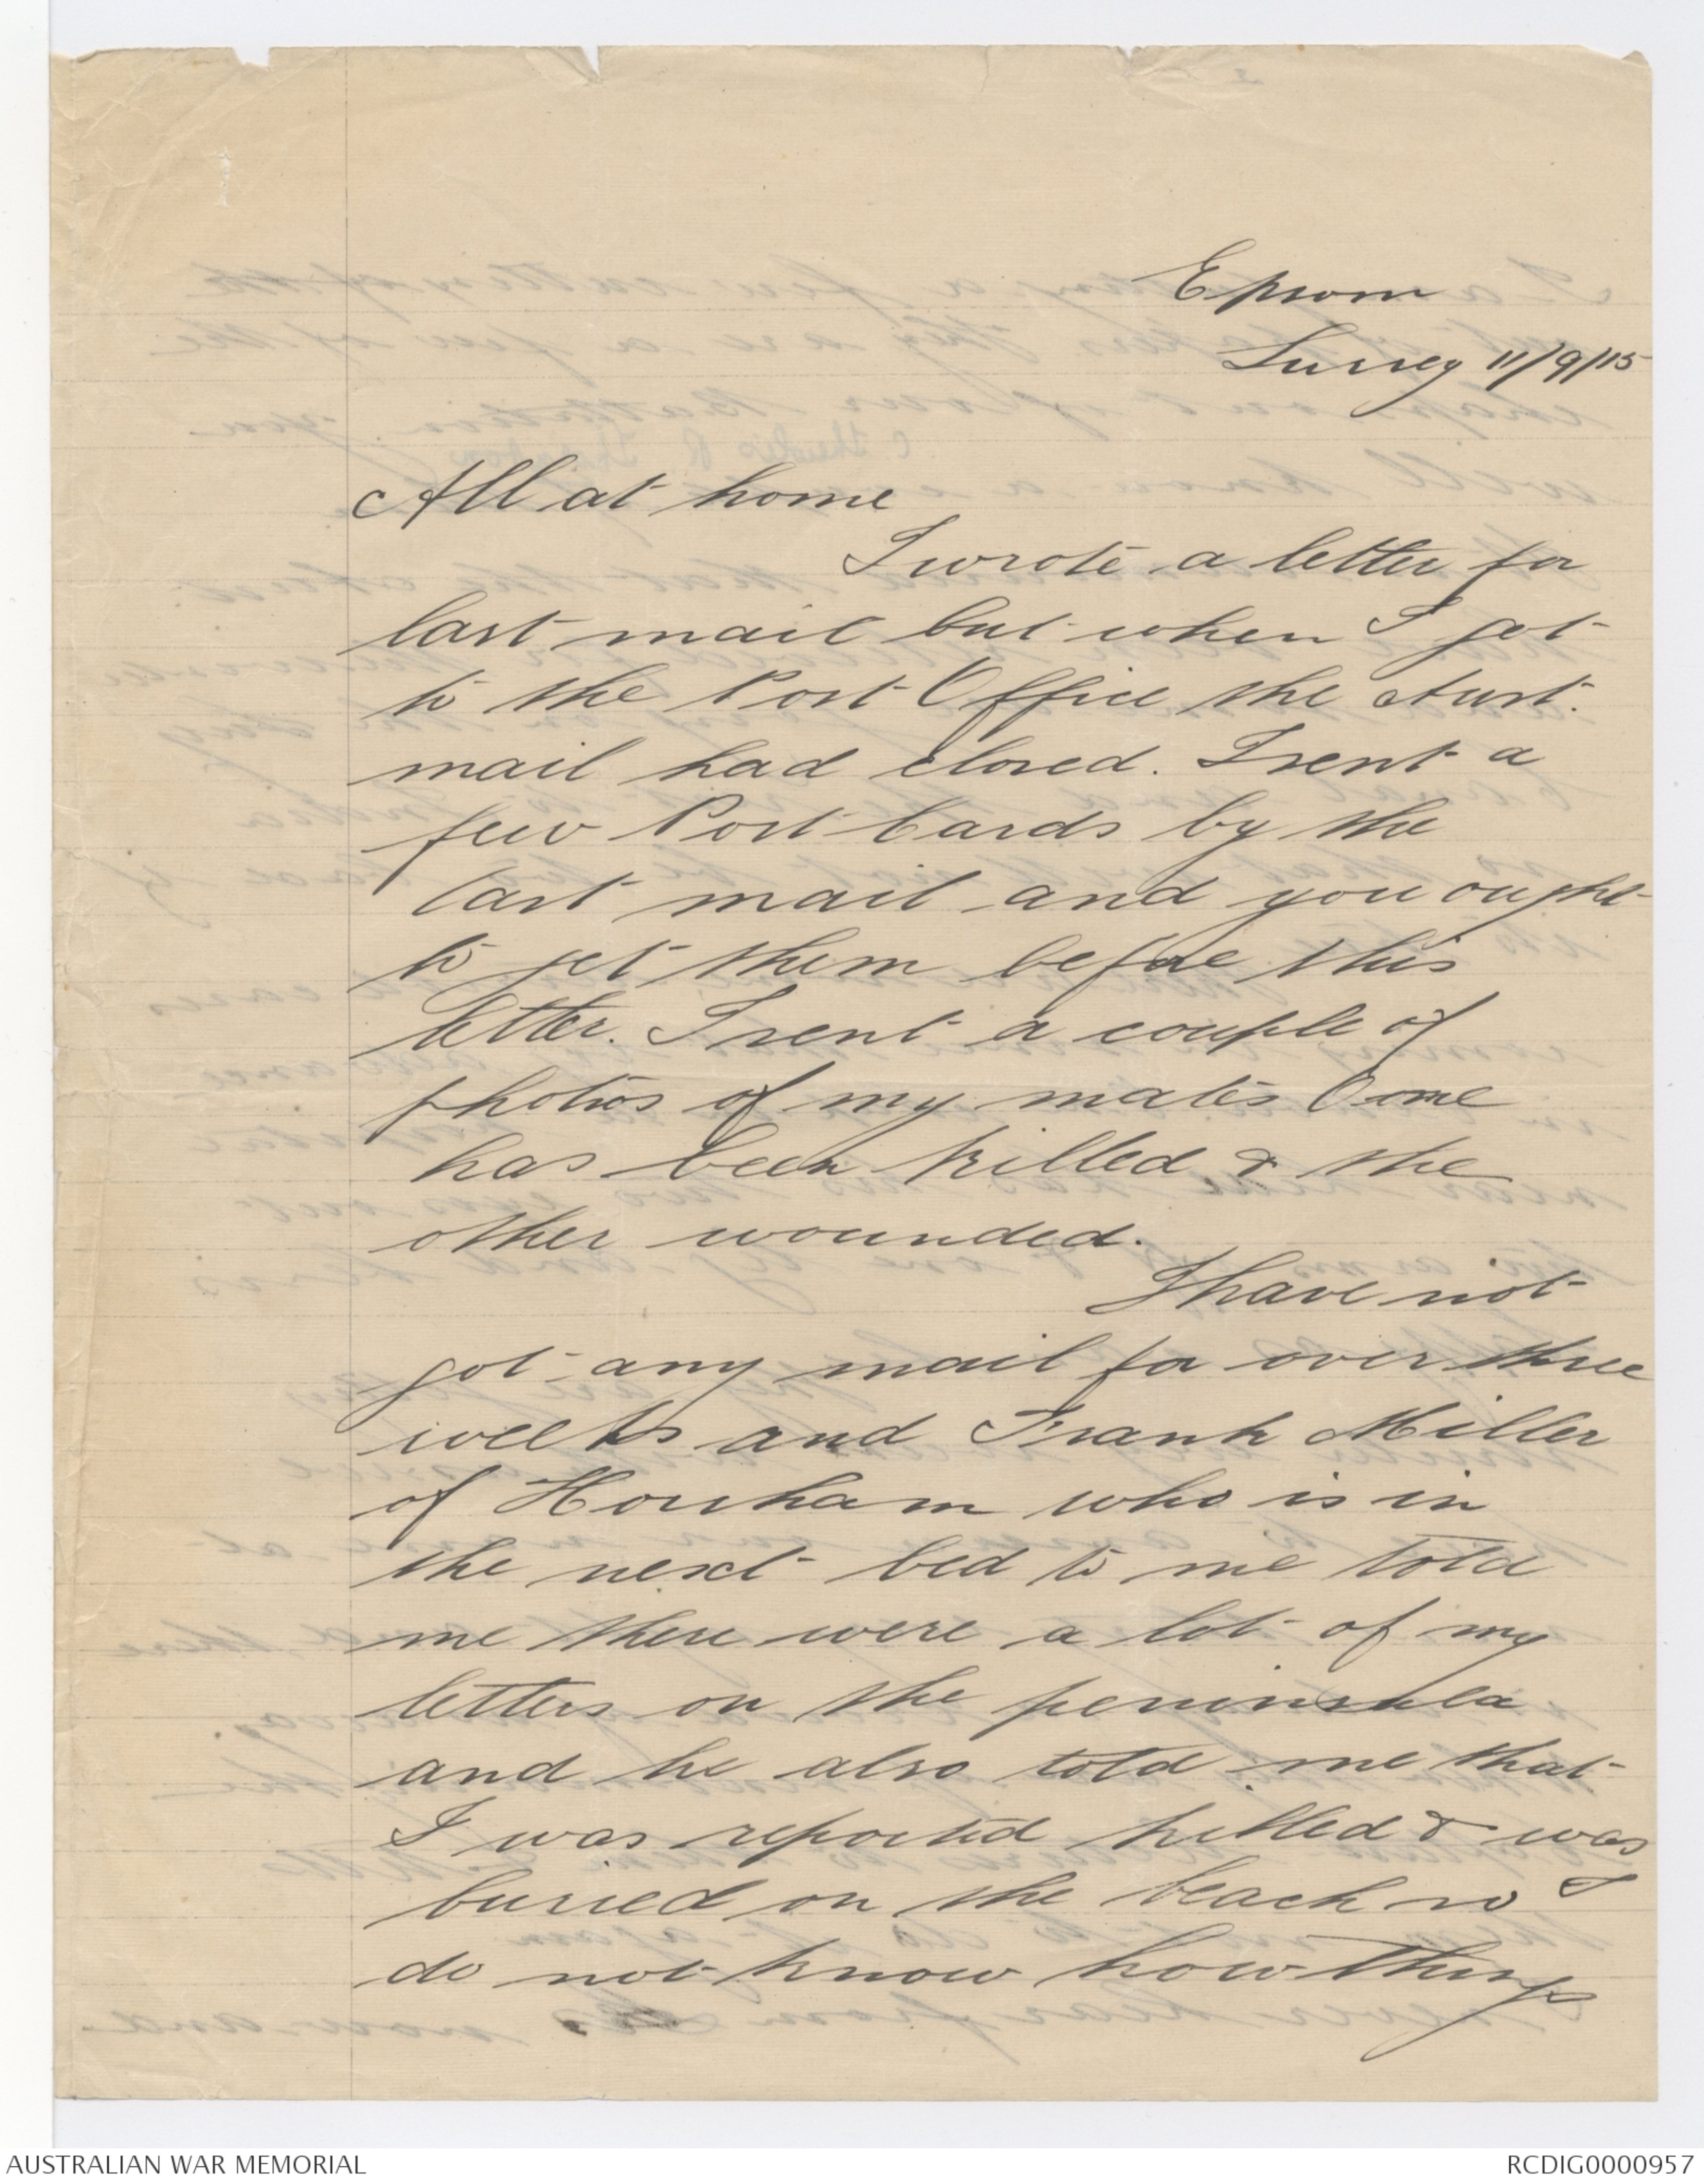 Epsom
Surrey 11/9/15
All at home
I wrote a letter for
last mail but when I got
to the Post Office the Aust.
mail had closed. I sent a
few Post Cards by the
last mail and you ought
to get them before this
letter. I sent a couple of
photos of my mates One
has been killed & the
other wounded.
I have not
got any mail for over three
weeks and Frank Miller
of Horsham who is in
the next bed to me told
me there were a lot of my
letters on the peninsula
and he also told me that
I was reported killed & was
buried on the beach so I
do not know how things
AUSTRALIAN WAR MEMORIAL
RCDIG0000957